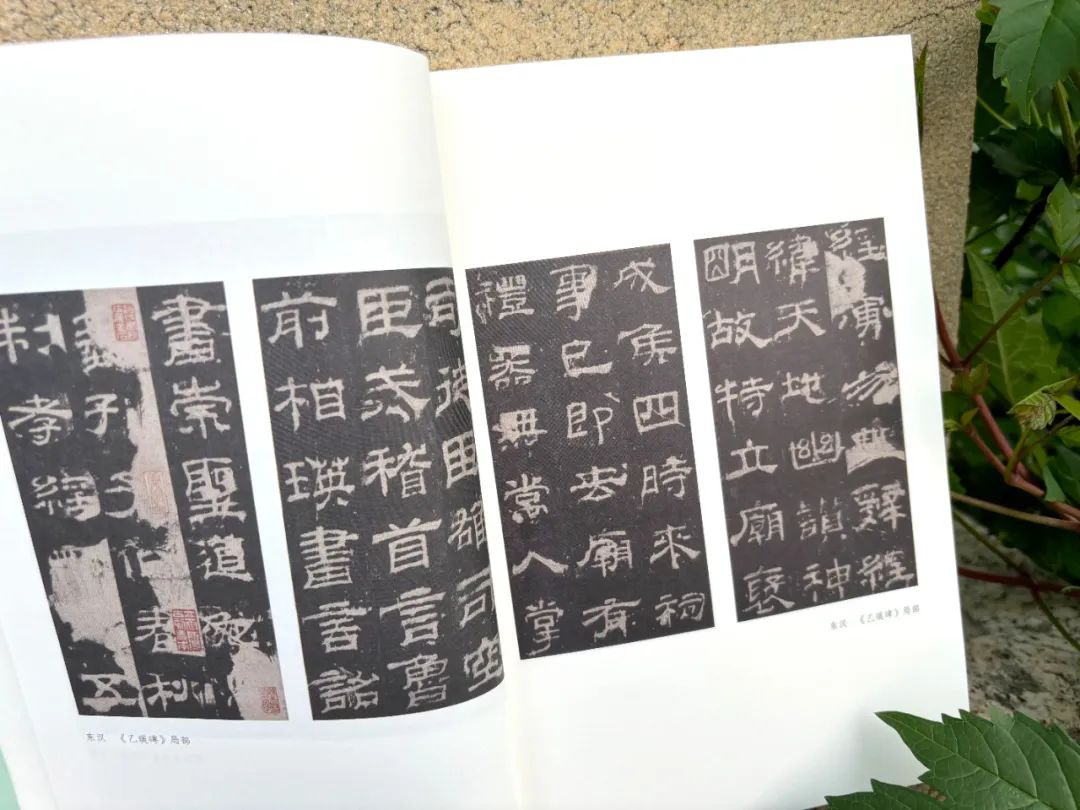 司徒臣雄司空
臣戒稽首言魯
前相瑛書言詔
書崇聖道勉
藝孔子作春秋
制孝經五
东汉 《乙瑛碑》局部
經演易繫辭經
緯天地幽讚神
明故特立廟褒
成侯四時來祠
事已即去廟有
禮器無常人掌
东汉 《乙瑛碑》局部